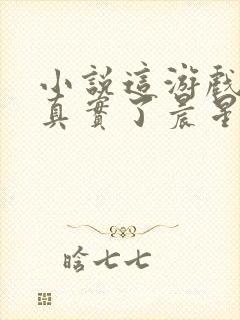 小說這游戲
真實了晨星
晗七七